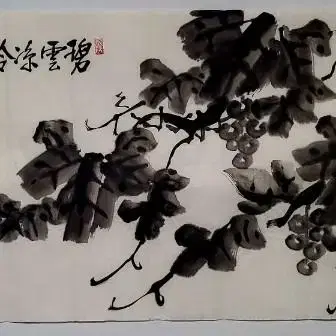 碧雲涼冷